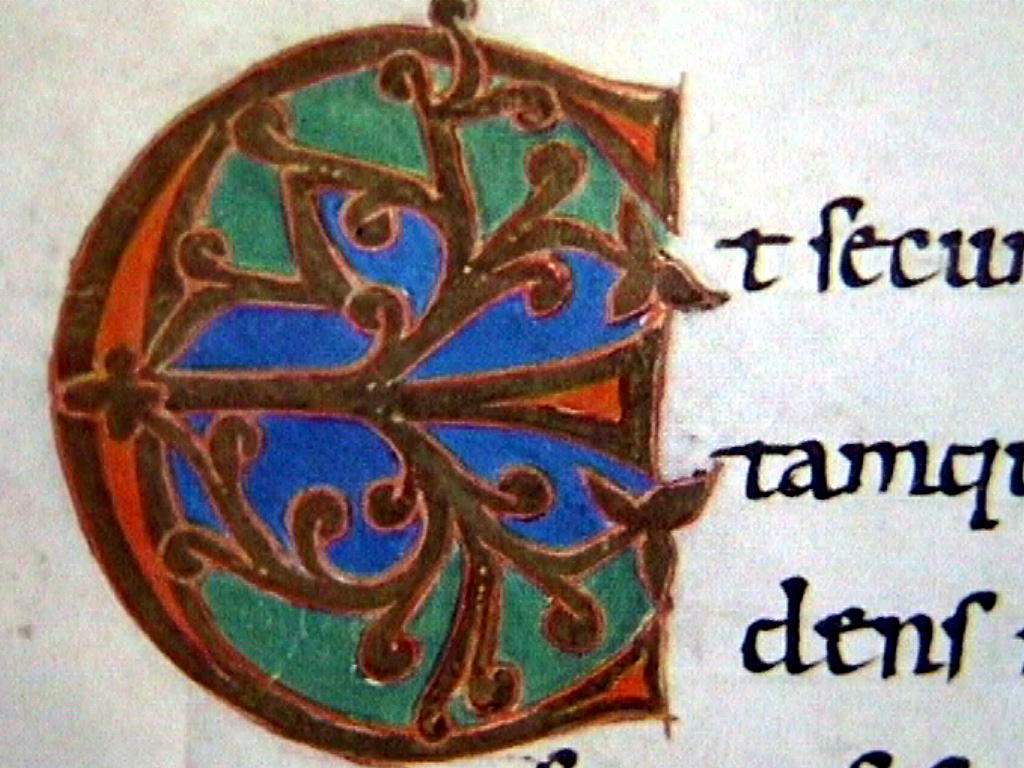 Et secun
tamqu
dens